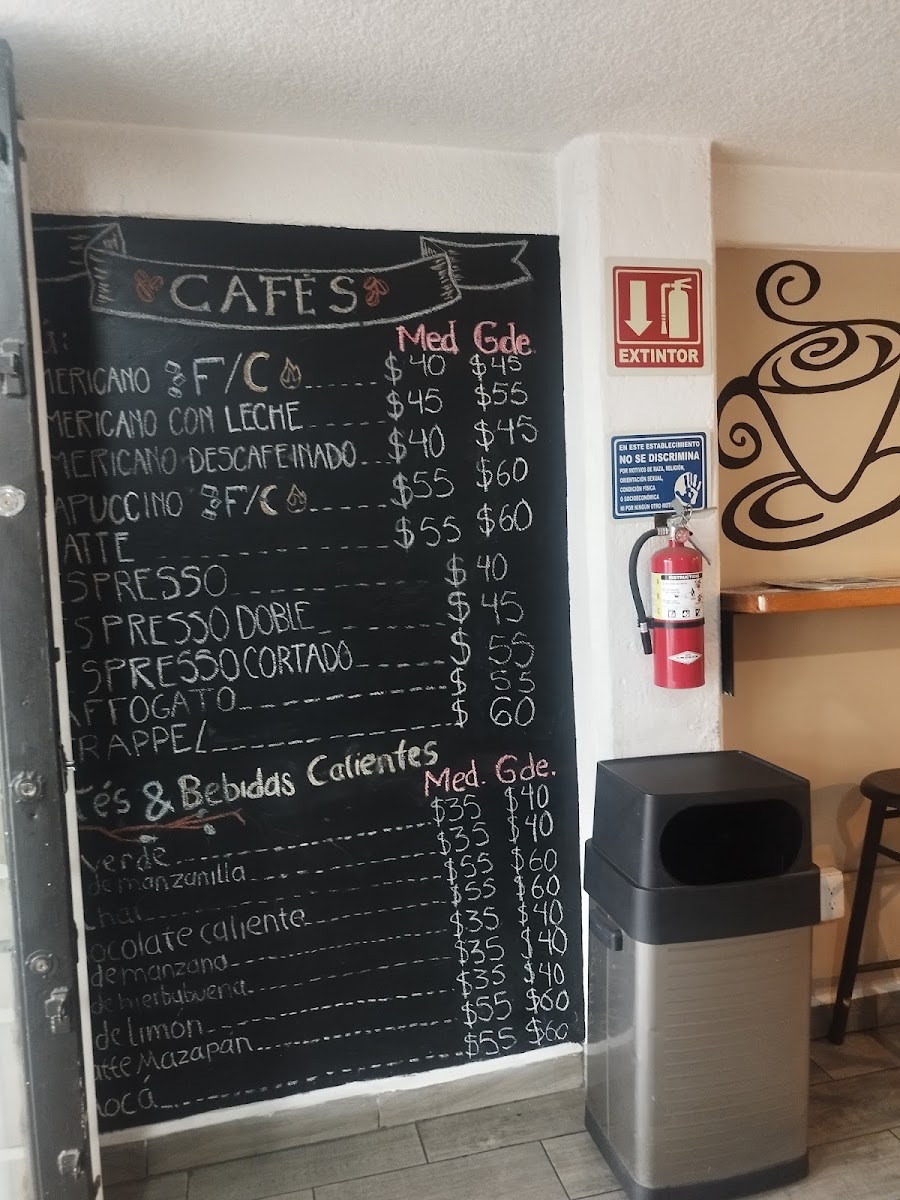 CAFÉS
Med Gde.
MERICANO F/C $40 $45
MERICANO CON LECHE $45 $55
MERICANO DESCAFEINADO $40 $45
APUCCINO F/C $55 $60
ATTE $55 $60
SPRESSO $40
ESPRESSO DOBLE $45
ESPRESSO CORTADO $55
AFFOGATO $55
RAPPE $60
és & Bebidas Calientes
Med. Gde.
verde $35 $40
de manzanilla $35 $40
hai $55 $60
ocolate caliente $55 $60
de manzana $35 $40
de hierbubuena $35 $40
de limón $35 $40
atte Mazapán $55 $60
ocá $55 $60
EXTINTOR
EN ESTE ESTABLECIMIENTO
NO SE DISCRIMINA
POR MOTIVOS DE RAZA, RELIGIÓN,
ORIENTACIÓN SEXUAL,
CONDICIÓN FÍSICA
O SOCIOECONÓMICA
NI POR NINGÚN OTRO MOTIVO
INSTRUCTIONS